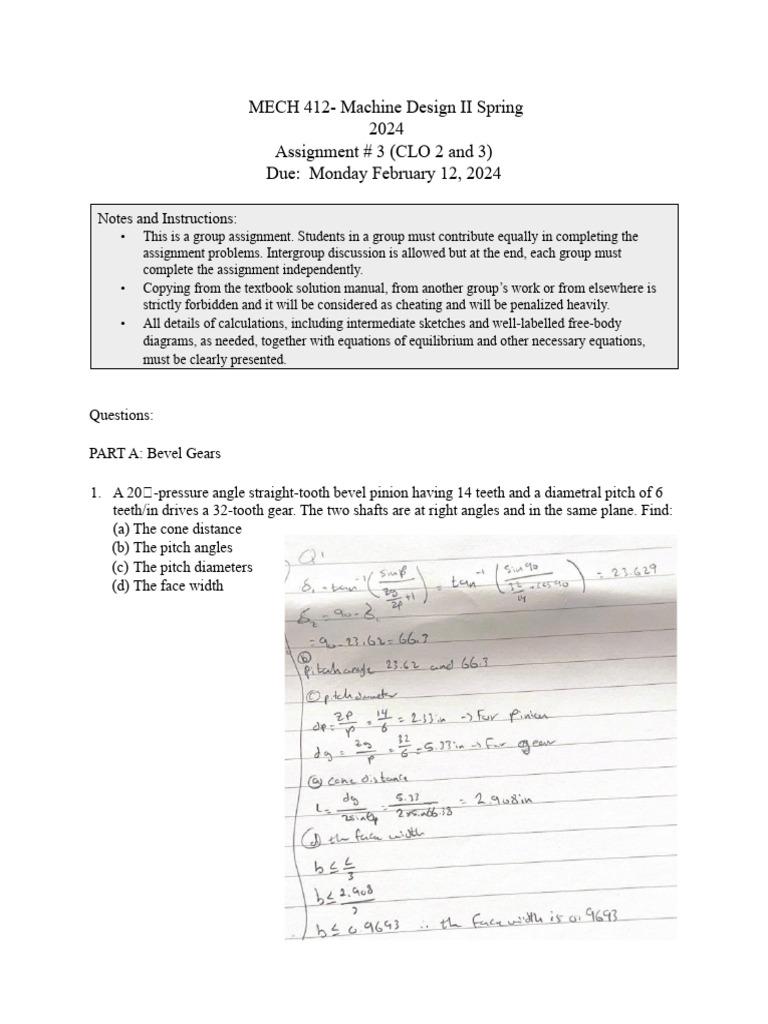 MECH 412- Machine Design II Spring
2024
Assignment # 3 (CLO 2 and 3)
Due: Monday February 12, 2024
Notes and Instructions:
• This is a group assignment. Students in a group must contribute equally in completing the
assignment problems. Intergroup discussion is allowed but at the end, each group must
complete the assignment independently.
• Copying from the textbook solution manual, from another group’s work or from elsewhere is
strictly forbidden and it will be considered as cheating and will be penalized heavily.
• All details of calculations, including intermediate sketches and well-labelled free-body
diagrams, as needed, together with equations of equilibrium and other necessary equations,
must be clearly presented.
Questions:
PART A: Bevel Gears
1. A 20□-pressure angle straight-tooth bevel pinion having 14 teeth and a diametral pitch of 6
teeth/in drives a 32-tooth gear. The two shafts are at right angles and in the same plane. Find:
(a) The cone distance
(b) The pitch angles
(c) The pitch diameters
(d) The face width
Q1
δ₁ = tan⁻¹ (sinβ / (zg/zp + 1)) = tan⁻¹ (sin90 / (32/14 + cos90)) = 23.629
δ₂ = 90 - δ₁
= 90 - 23.62 = 66.3
(b)
Pitch angle 23.62 and 66.3
(c) pitch diameter
dp = zp/p = 14/6 = 2.33in → For Pinion
dg = zg/p = 32/6 = 5.33in → For gear
(a) cone distance
L = dg / 2sin = 5.33 / 2×sin66.38 = 2.908in
(d) the face width
b ≤ L/3
b ≤ 2.908/3
b ≤ 0.9693 ∴ the face width is 0.9693